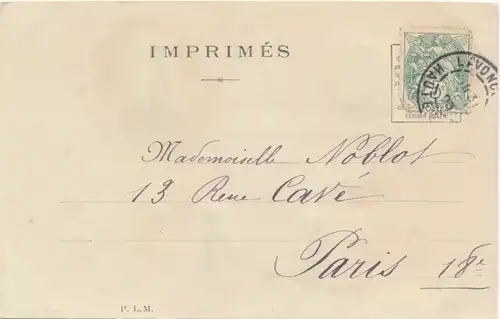 IMPRIMÉS
Mademoiselle Noblot
13 Rue Cavé
Paris 18e
P. L. M.